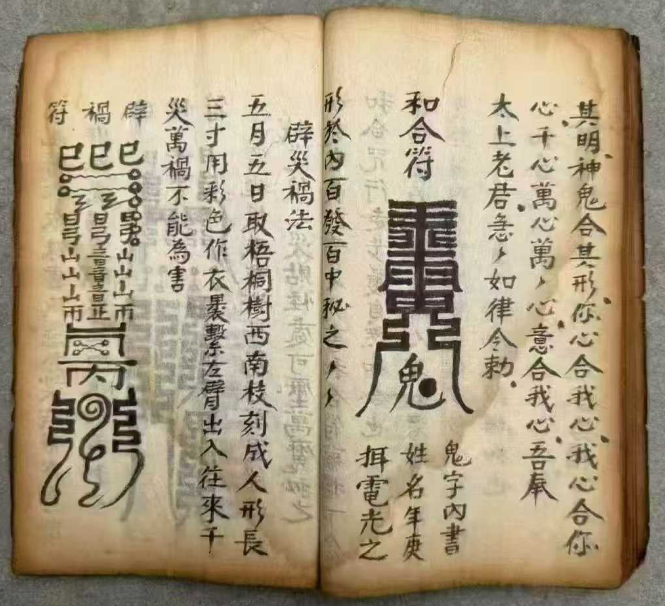 其明神鬼合其形你心合我心我心合你
心千心萬心萬丶心意合我心吾奉
太上老君急丶如律令勅
和合符
鬼
鬼字內書
姓名年庚
揖電光之
形於內百發百中秘之丶丶
辟災禍法
五月五日取梧桐樹西南枝刻成人形長
三寸用彩色作衣裹繫左臂出入往來千
災萬禍不能為害
辟
禍
符